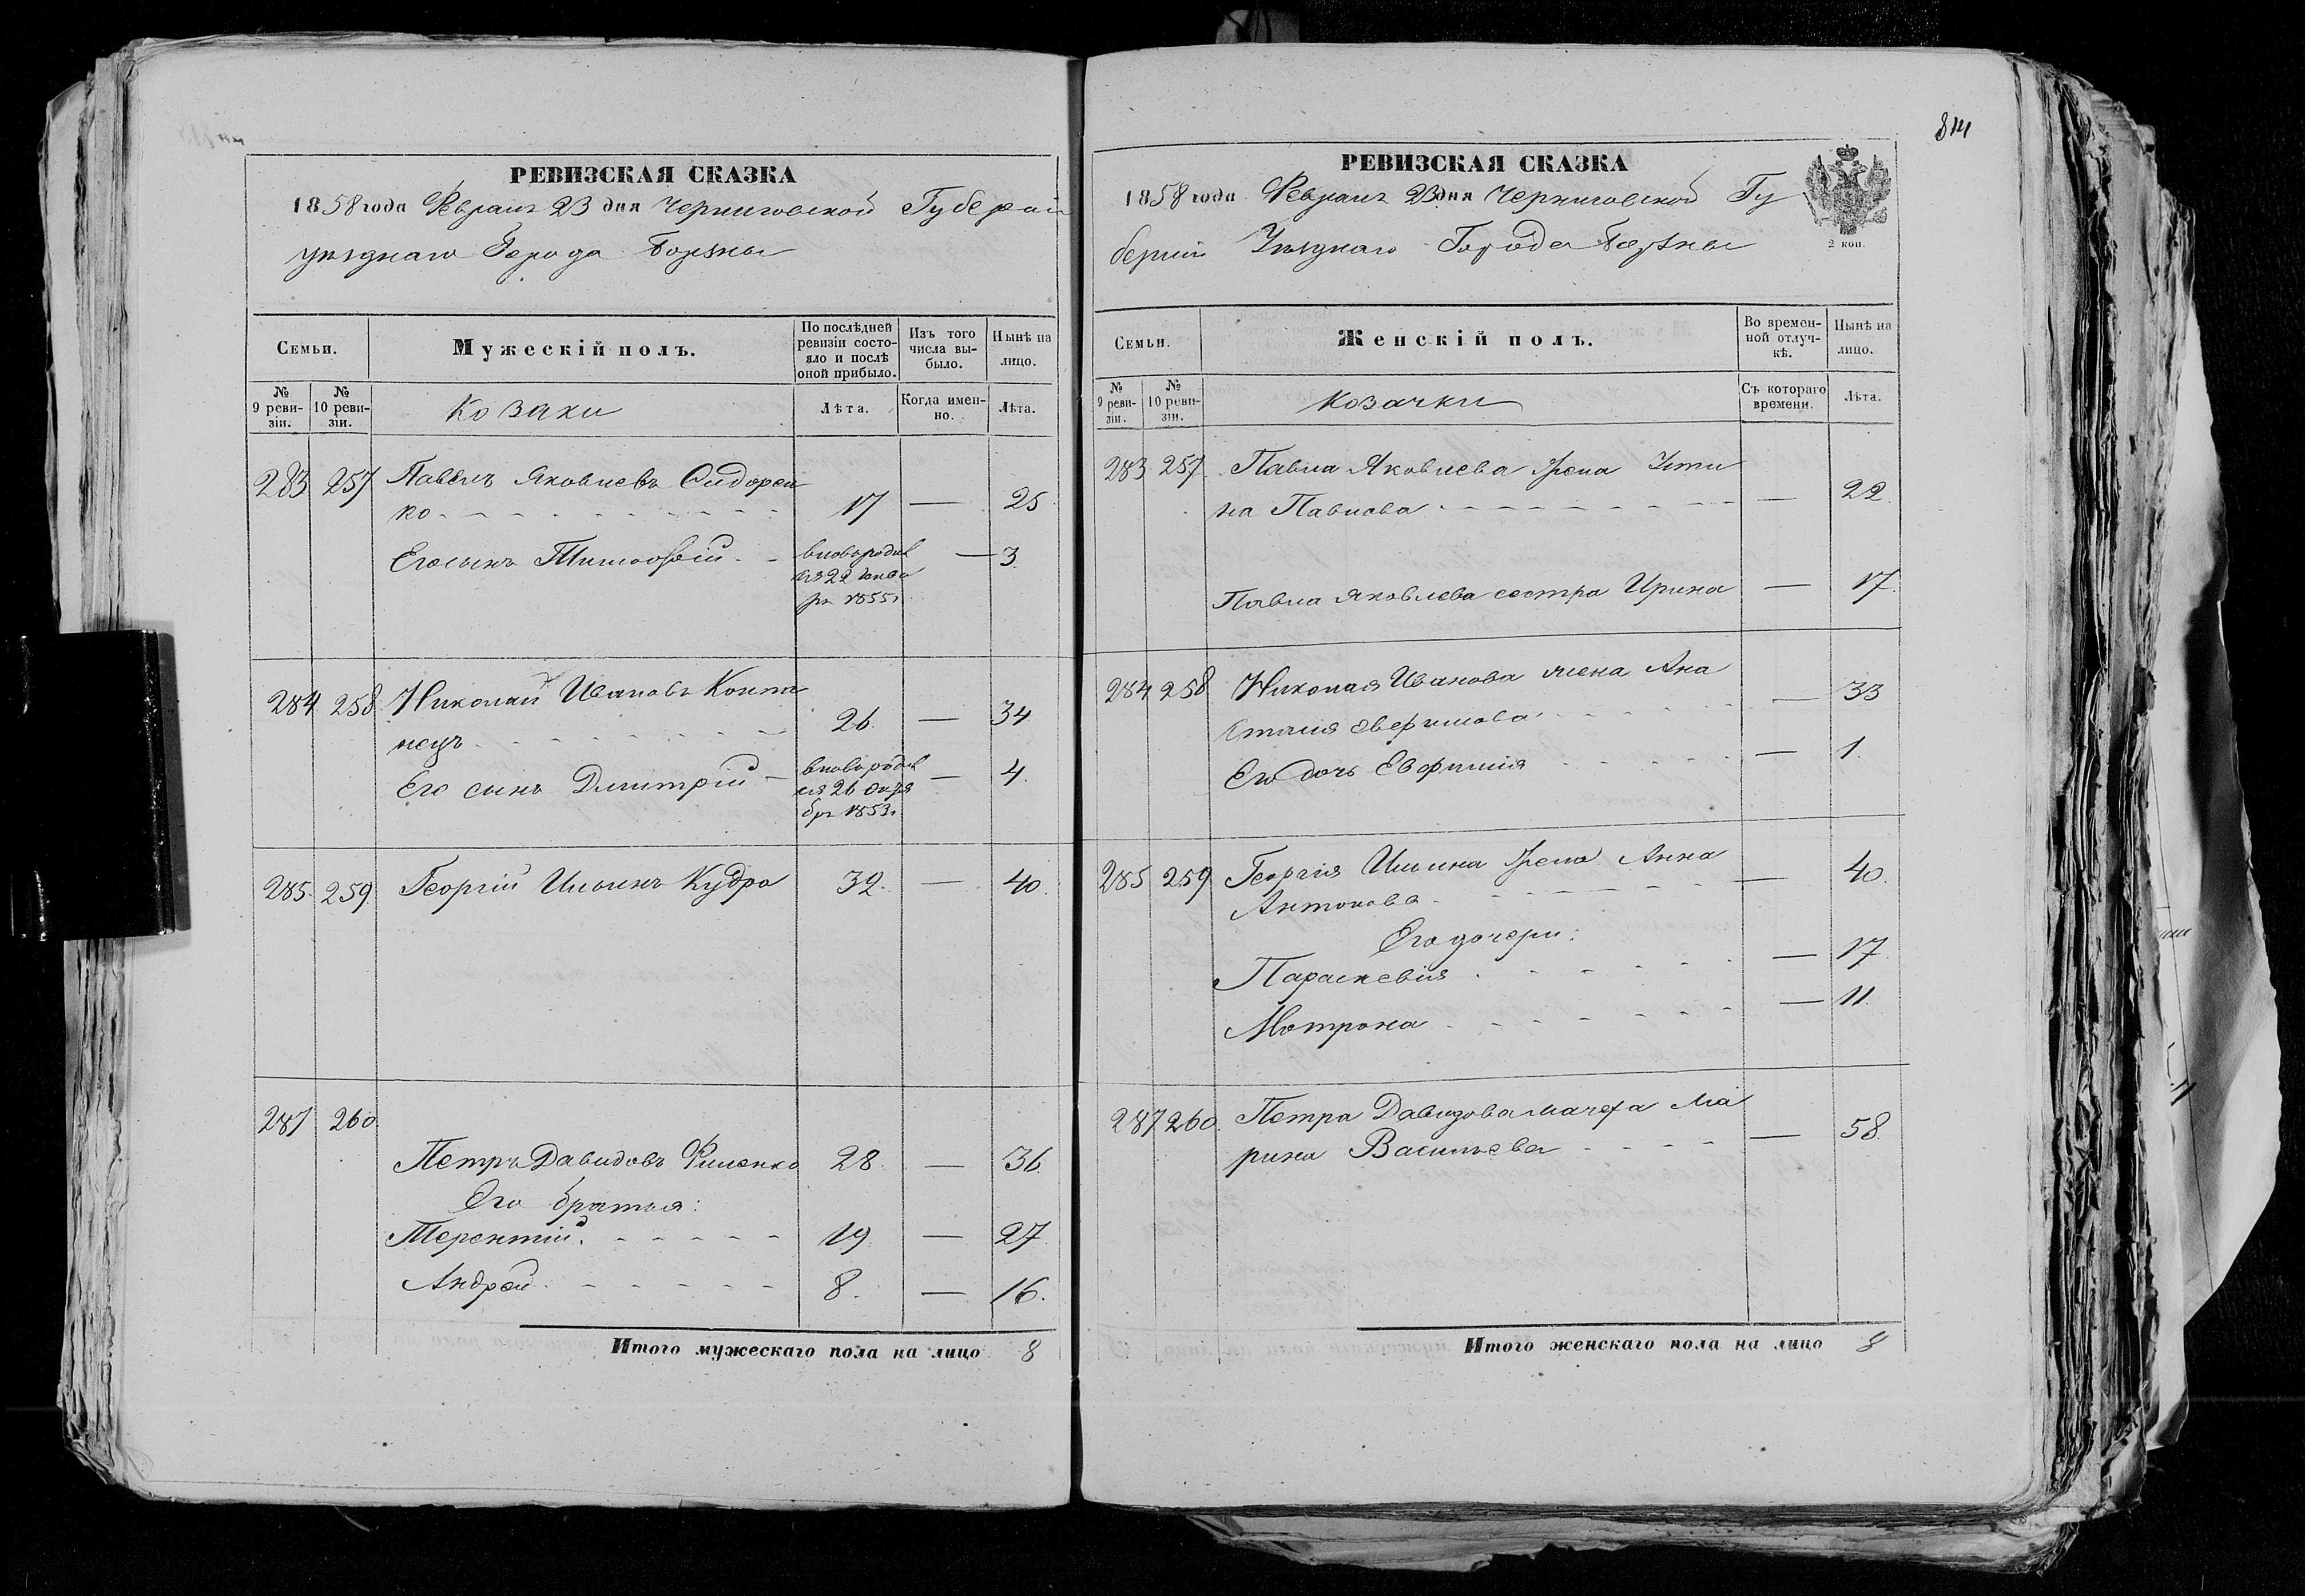 814
РЕВИЗСКАЯ СКАЗКА
1858 года Февраль 23 дня Черниговской Губерніи
уѣзднаго Города Борзны
Семьи.
Мужескій полъ.
По послѣдней ревизіи состояло и послѣ оной прибыло.
Изъ того числа выбыло.
Нынѣ на лицо.
№ 9 ревизіи.
№ 10 ревизіи.
Козаки
Лѣта.
Когда именно.
Лѣта.
283 257 Павелъ Яковлевъ Сидорен
ко 17 — 25
Его сынъ Тимофѣй вновородив — 3
ся 22 Генва
ря 1855 г.
284 258 Николай Ивановъ Конта
нецъ 26 — 34
Его сынъ Димитрій вновородив — 4
ся 26 Октя
бря 1853 г.
285 259 Георгій Ильинъ Кудра 32 — 40
287 260
Петръ Давидовъ Фименко 28 — 36
Его братья:
Терентій 19 — 27
Андрей 8 — 16
Итого мужескаго пола на лицо 8
РЕВИЗСКАЯ СКАЗКА
1858 года Февраль 23 дня Черниговской Гу
берніи Уѣзднаго Города Борзны
2 коп.
Семьи.
Женскій полъ.
Во временной отлучкѣ.
Нынѣ на лицо.
№ 9 ревизіи.
№ 10 ревизіи.
Козачки
Съ котораго времени.
Лѣта.
283 257 Павла Яковлева жена Усти
на Павлова — 22
Павла Яковлева сестра Ирина — 17
284 258 Николая Иванова жена Ана
стасія — 33
Его дочь Евфимія — 1
285 259 Георгія Ильина жена Анна
Антонова — 40
Его дочери:
Параскевія — 17
Мотрона — 11
287 260 Петра Давидова мачеха Ма
рина Васильева — 58
Итого женскаго пола на лицо 8